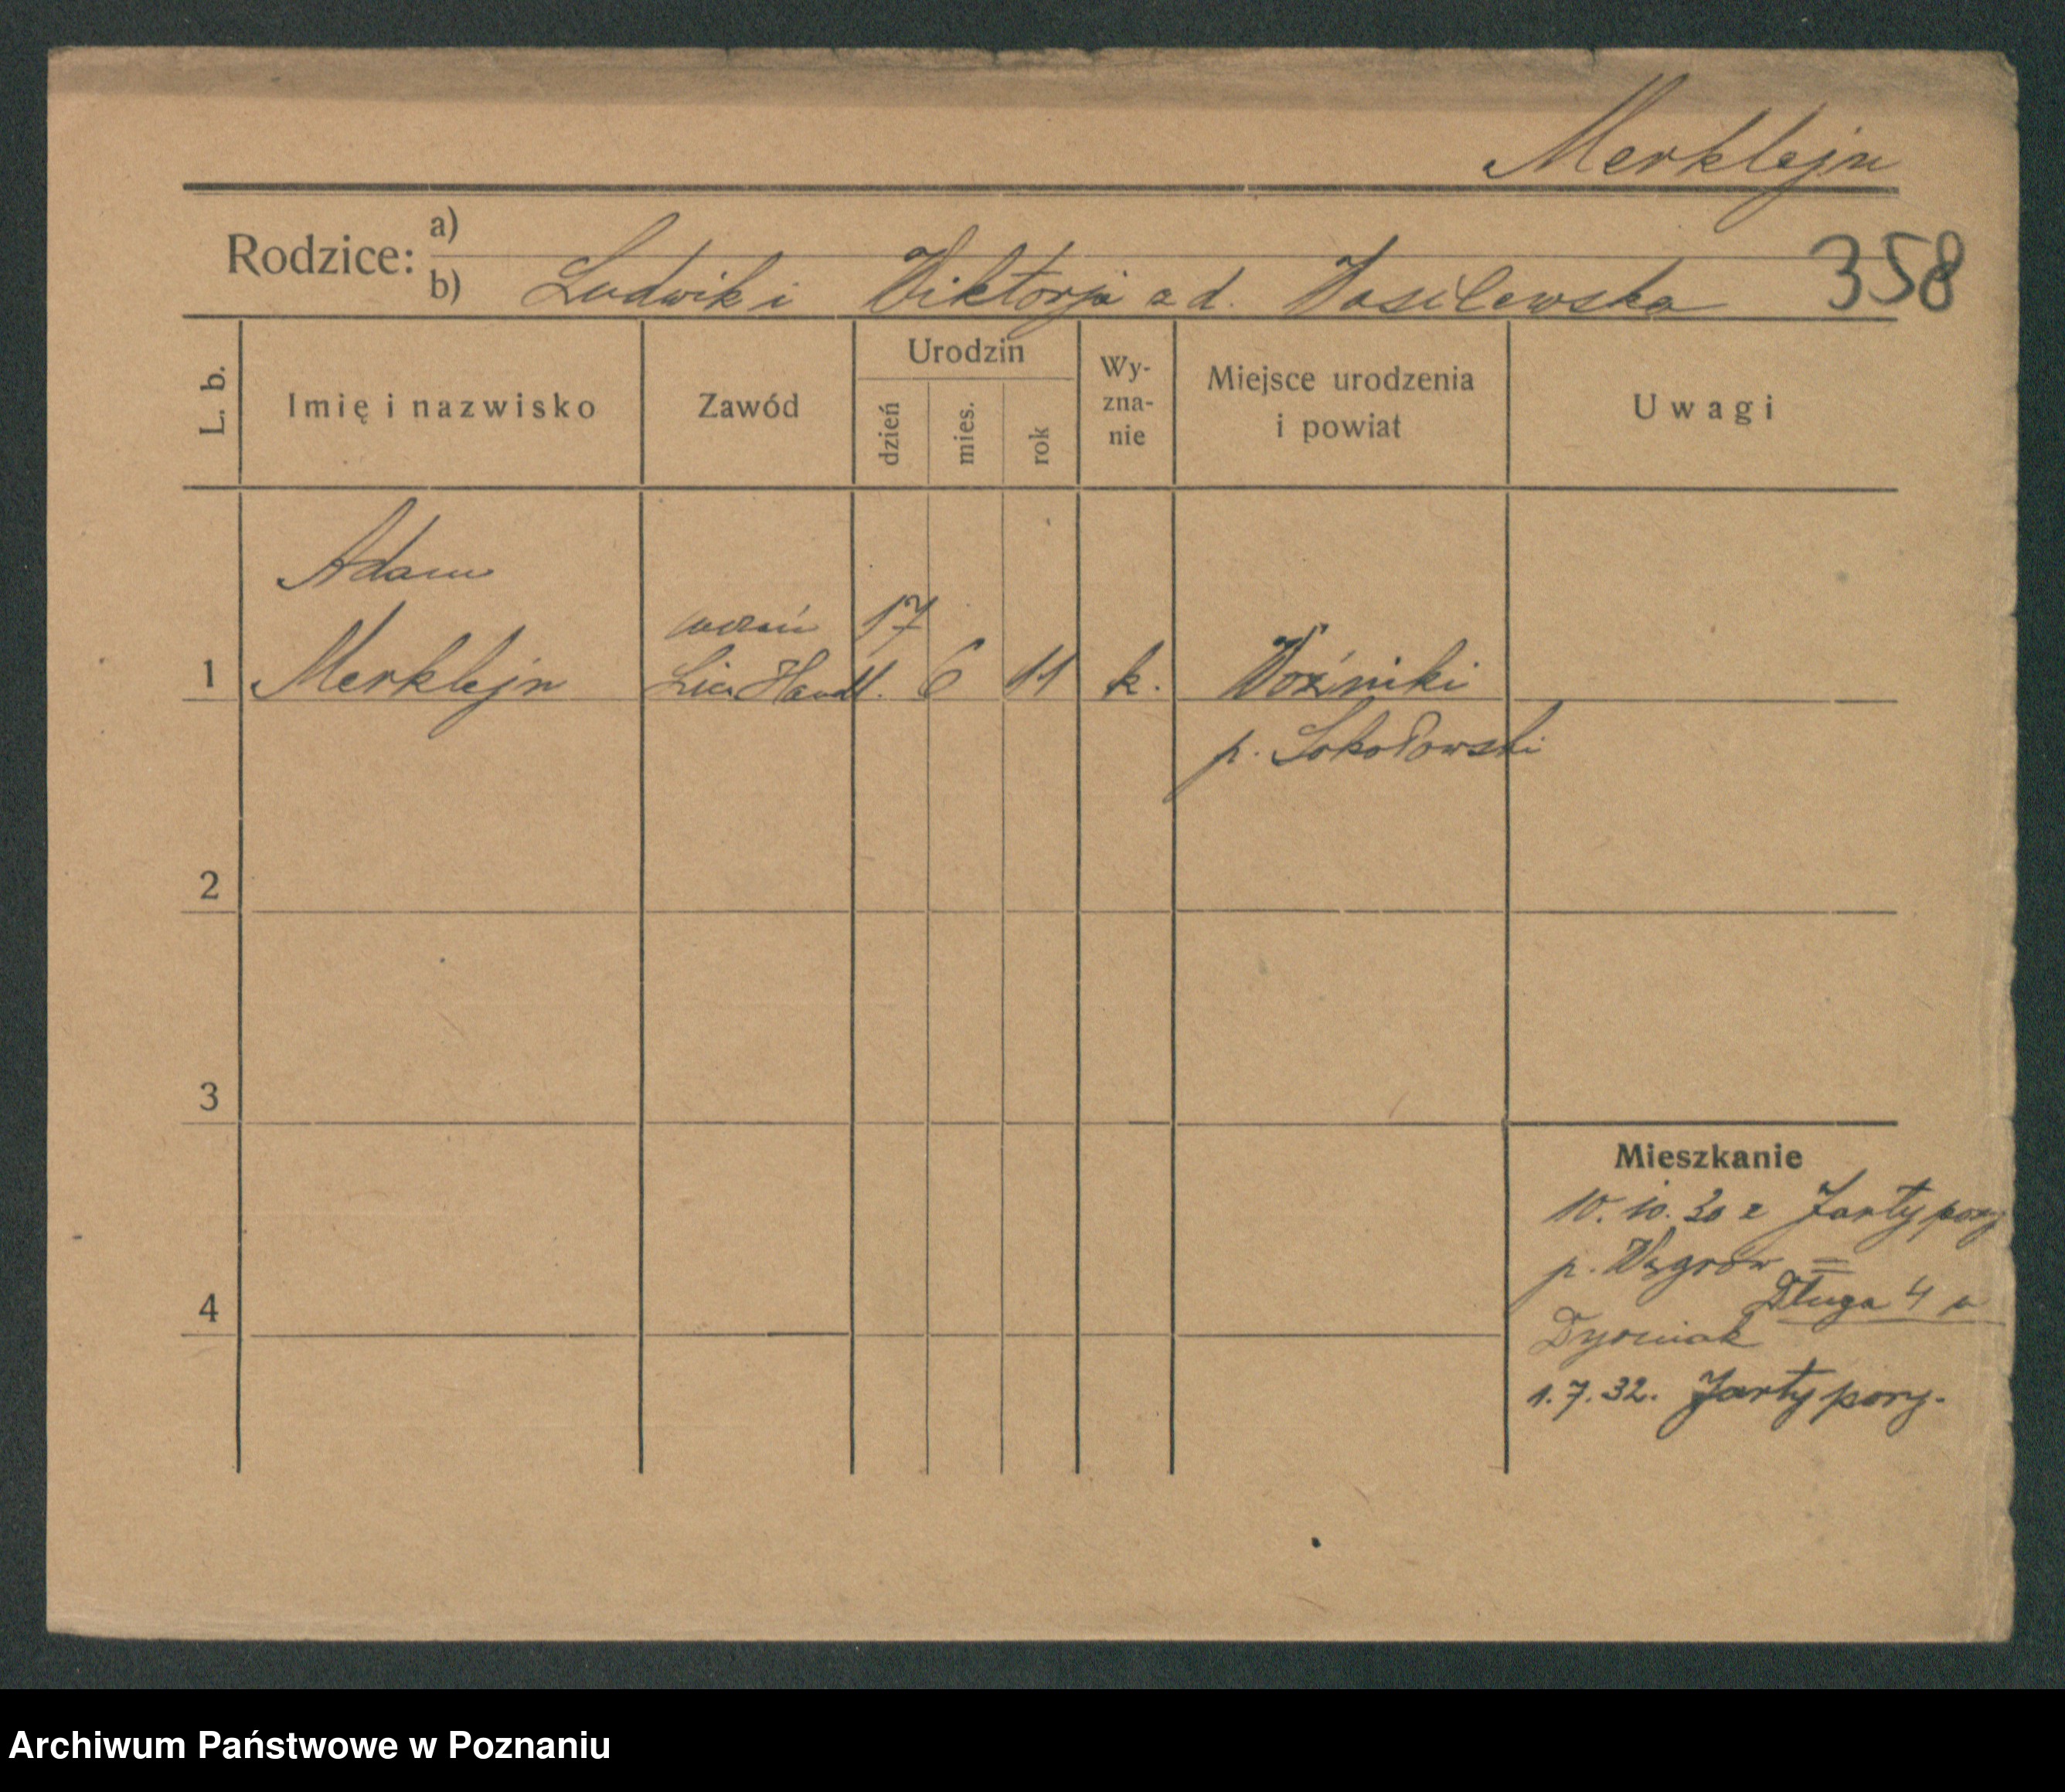 Merklejn
Rodzice: a)
b) Ludwik i Wiktorja a d. Wasilewska 358
L. b.
Imię i nazwisko
Zawód
Urodzin
dzień
mies.
rok
Wy-
zna-
nie
Miejsce urodzenia
i powiat
Uwagi
Adam
uczeń 17
1 Merklejn Lic. Handl. 6 11 k. Woźniki
p. Sokołowski
2
3
4
Mieszkanie
10. 10. 30 z Jartypory
p. Węgrów =
Długa 4 a
1. 7. 32. Jartypory.
Archiwum Państwowe w Poznaniu